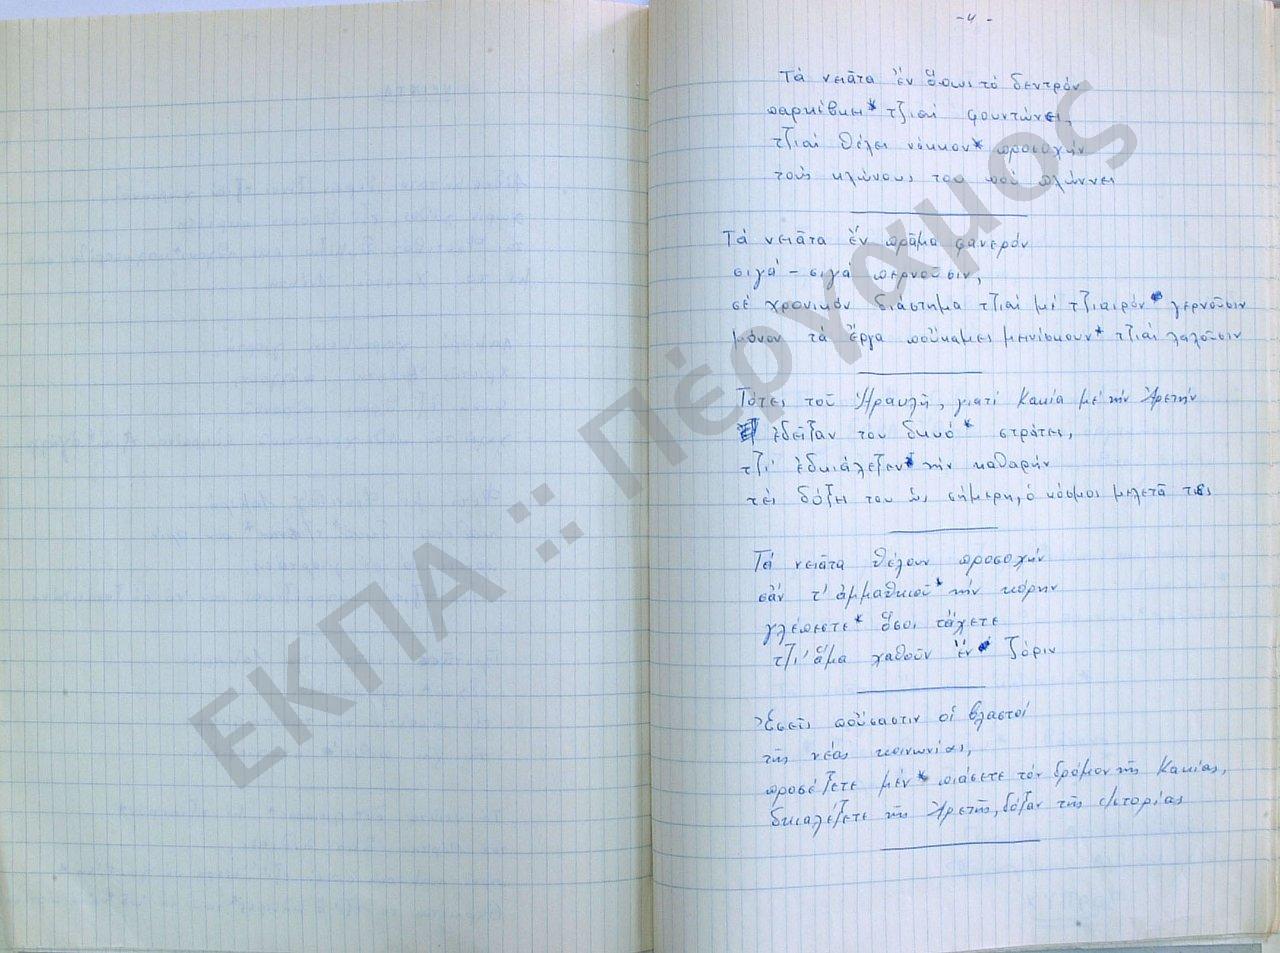 -4-
Τά νειᾶτα ἔν ὅπως τό δεντρόν
* τζιαί φουντώνει,
τζιαί θέλει νάκκον* προσοχήν
τούς κλώνους του πού πλώννει
Τά νειᾶτα ἔν πρᾶμα φανερόν
σιγά - σιγά περνοῦσιν,
σέ χρονικόν διάστημα τζιαί μέ τζιαιρόν* γερνοῦσιν
μόνον τά ἔργα πούκαμες μεινίσκουν* τζιαί λαλοῦσιν
τοῦ Ἡρακλῆ, γιατί Κακία μέ τήν Ἀρετήν
ἐδεῖξαν του δκυό* στράτες,
τζι' ἐδκιάλεξεν* τήν καθαρήν
τές δόξες του ὥς σήμερη, ὁ κόσμος μελετᾶ τες
Τά νειᾶτα θέλουν προσοχήν
σάν τ' ἀμμαθκιοῦ* τήν κόρην
γλέπετε* ὅσοι τάχετε
τζι' ἅμα χαθοῦν ἔν* ζόριν
Ἐσεῖς πούσαστιν οἱ βλαστοί
τῆς νέας κοινωνίας,
προσέξετε μέν* πιάσετε τόν δρόμον τῆς Κακίας,
δκιαλέξετε τῆς Ἀρετῆς, δόξαν τῆς ἱστορίας
ΕΚΠΑ :: Πέργαμος